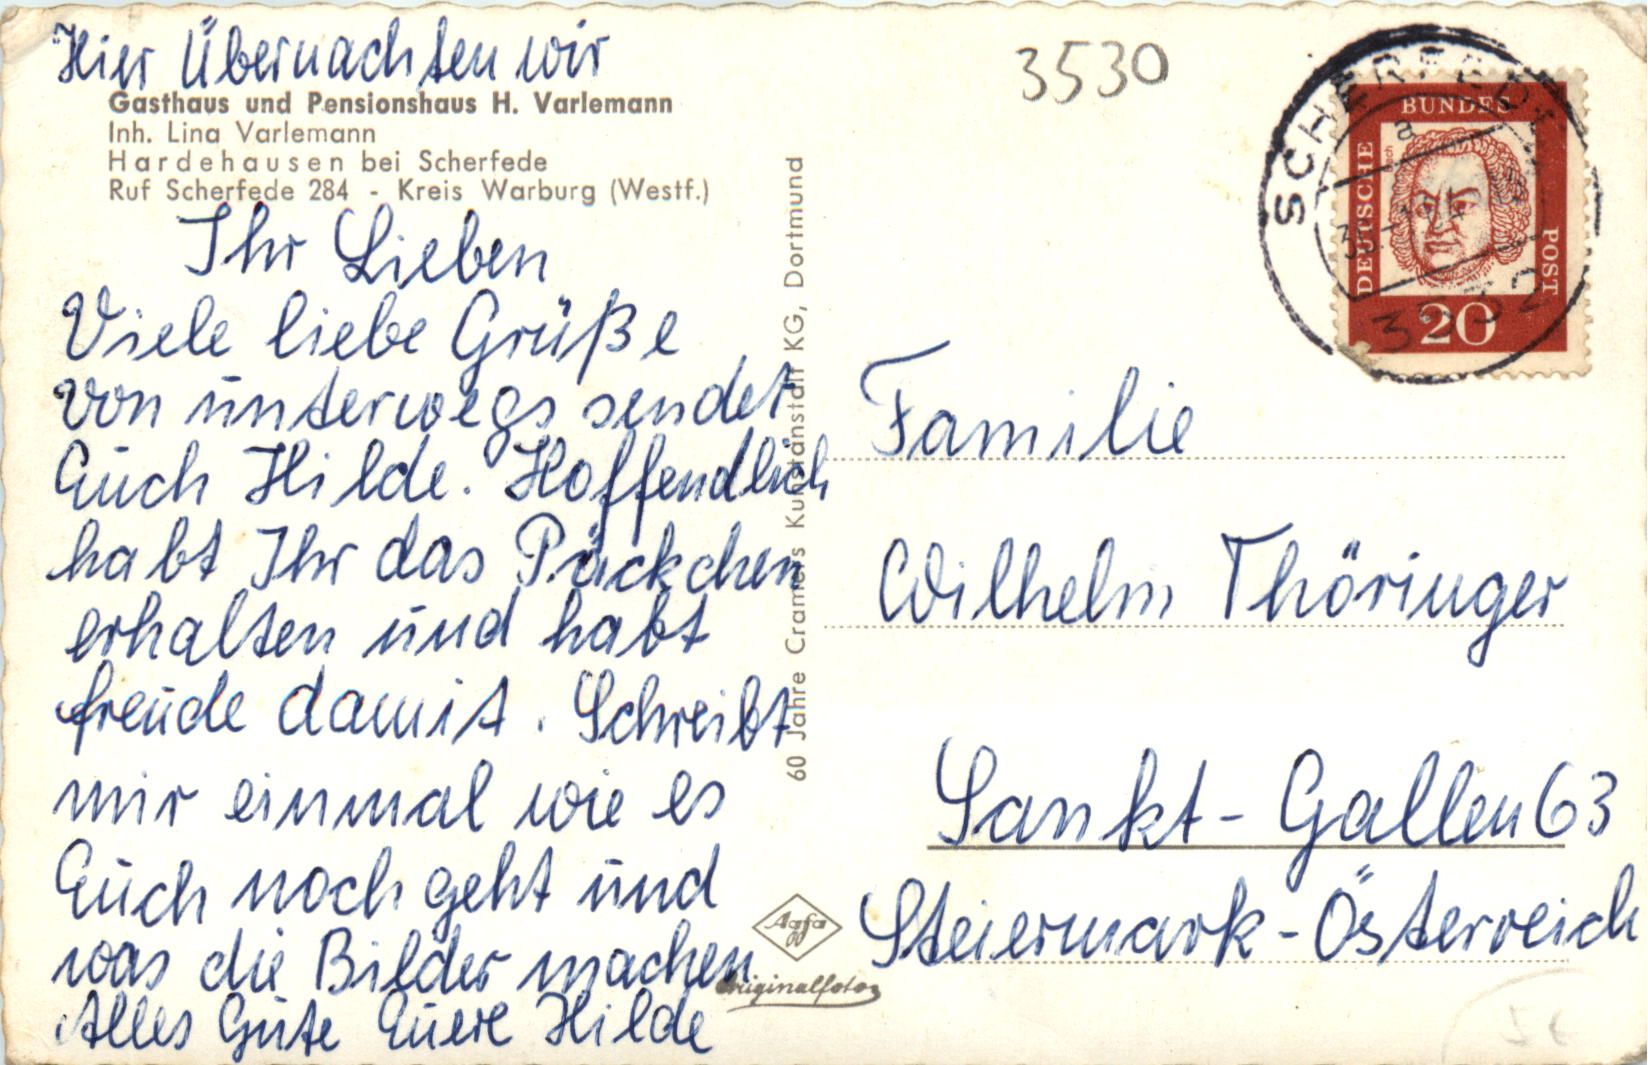 Hier Übernachten wir
Gasthaus und Pensionshaus H. Varlemann
Inh. Lina Varlemann
Hardehausen bei Scherfede
Ruf Scherfede 284 - Kreis Warburg (Westf.)
Ihr Lieben
Viele liebe Grüße
von unterwegs sendet
Euch Hilde. Hoffendlich
habt Ihr das Päckchen
erhalten und habt
freude damit. Schreibt
mir einmal wie es
Euch noch geht und
was die Bilder machen
Alles Gute Euere Hilde
60 Jahre Cramers Kunstanstalt KG, Dortmund
Agfa
Originalfoto
3530
SCHERFEDE
a
3532
DEUTSCHE
BUNDES
POST
20
Familie
Wilhelm Thöringer
Sankt-Gallen 63
Steiermark-Österreich